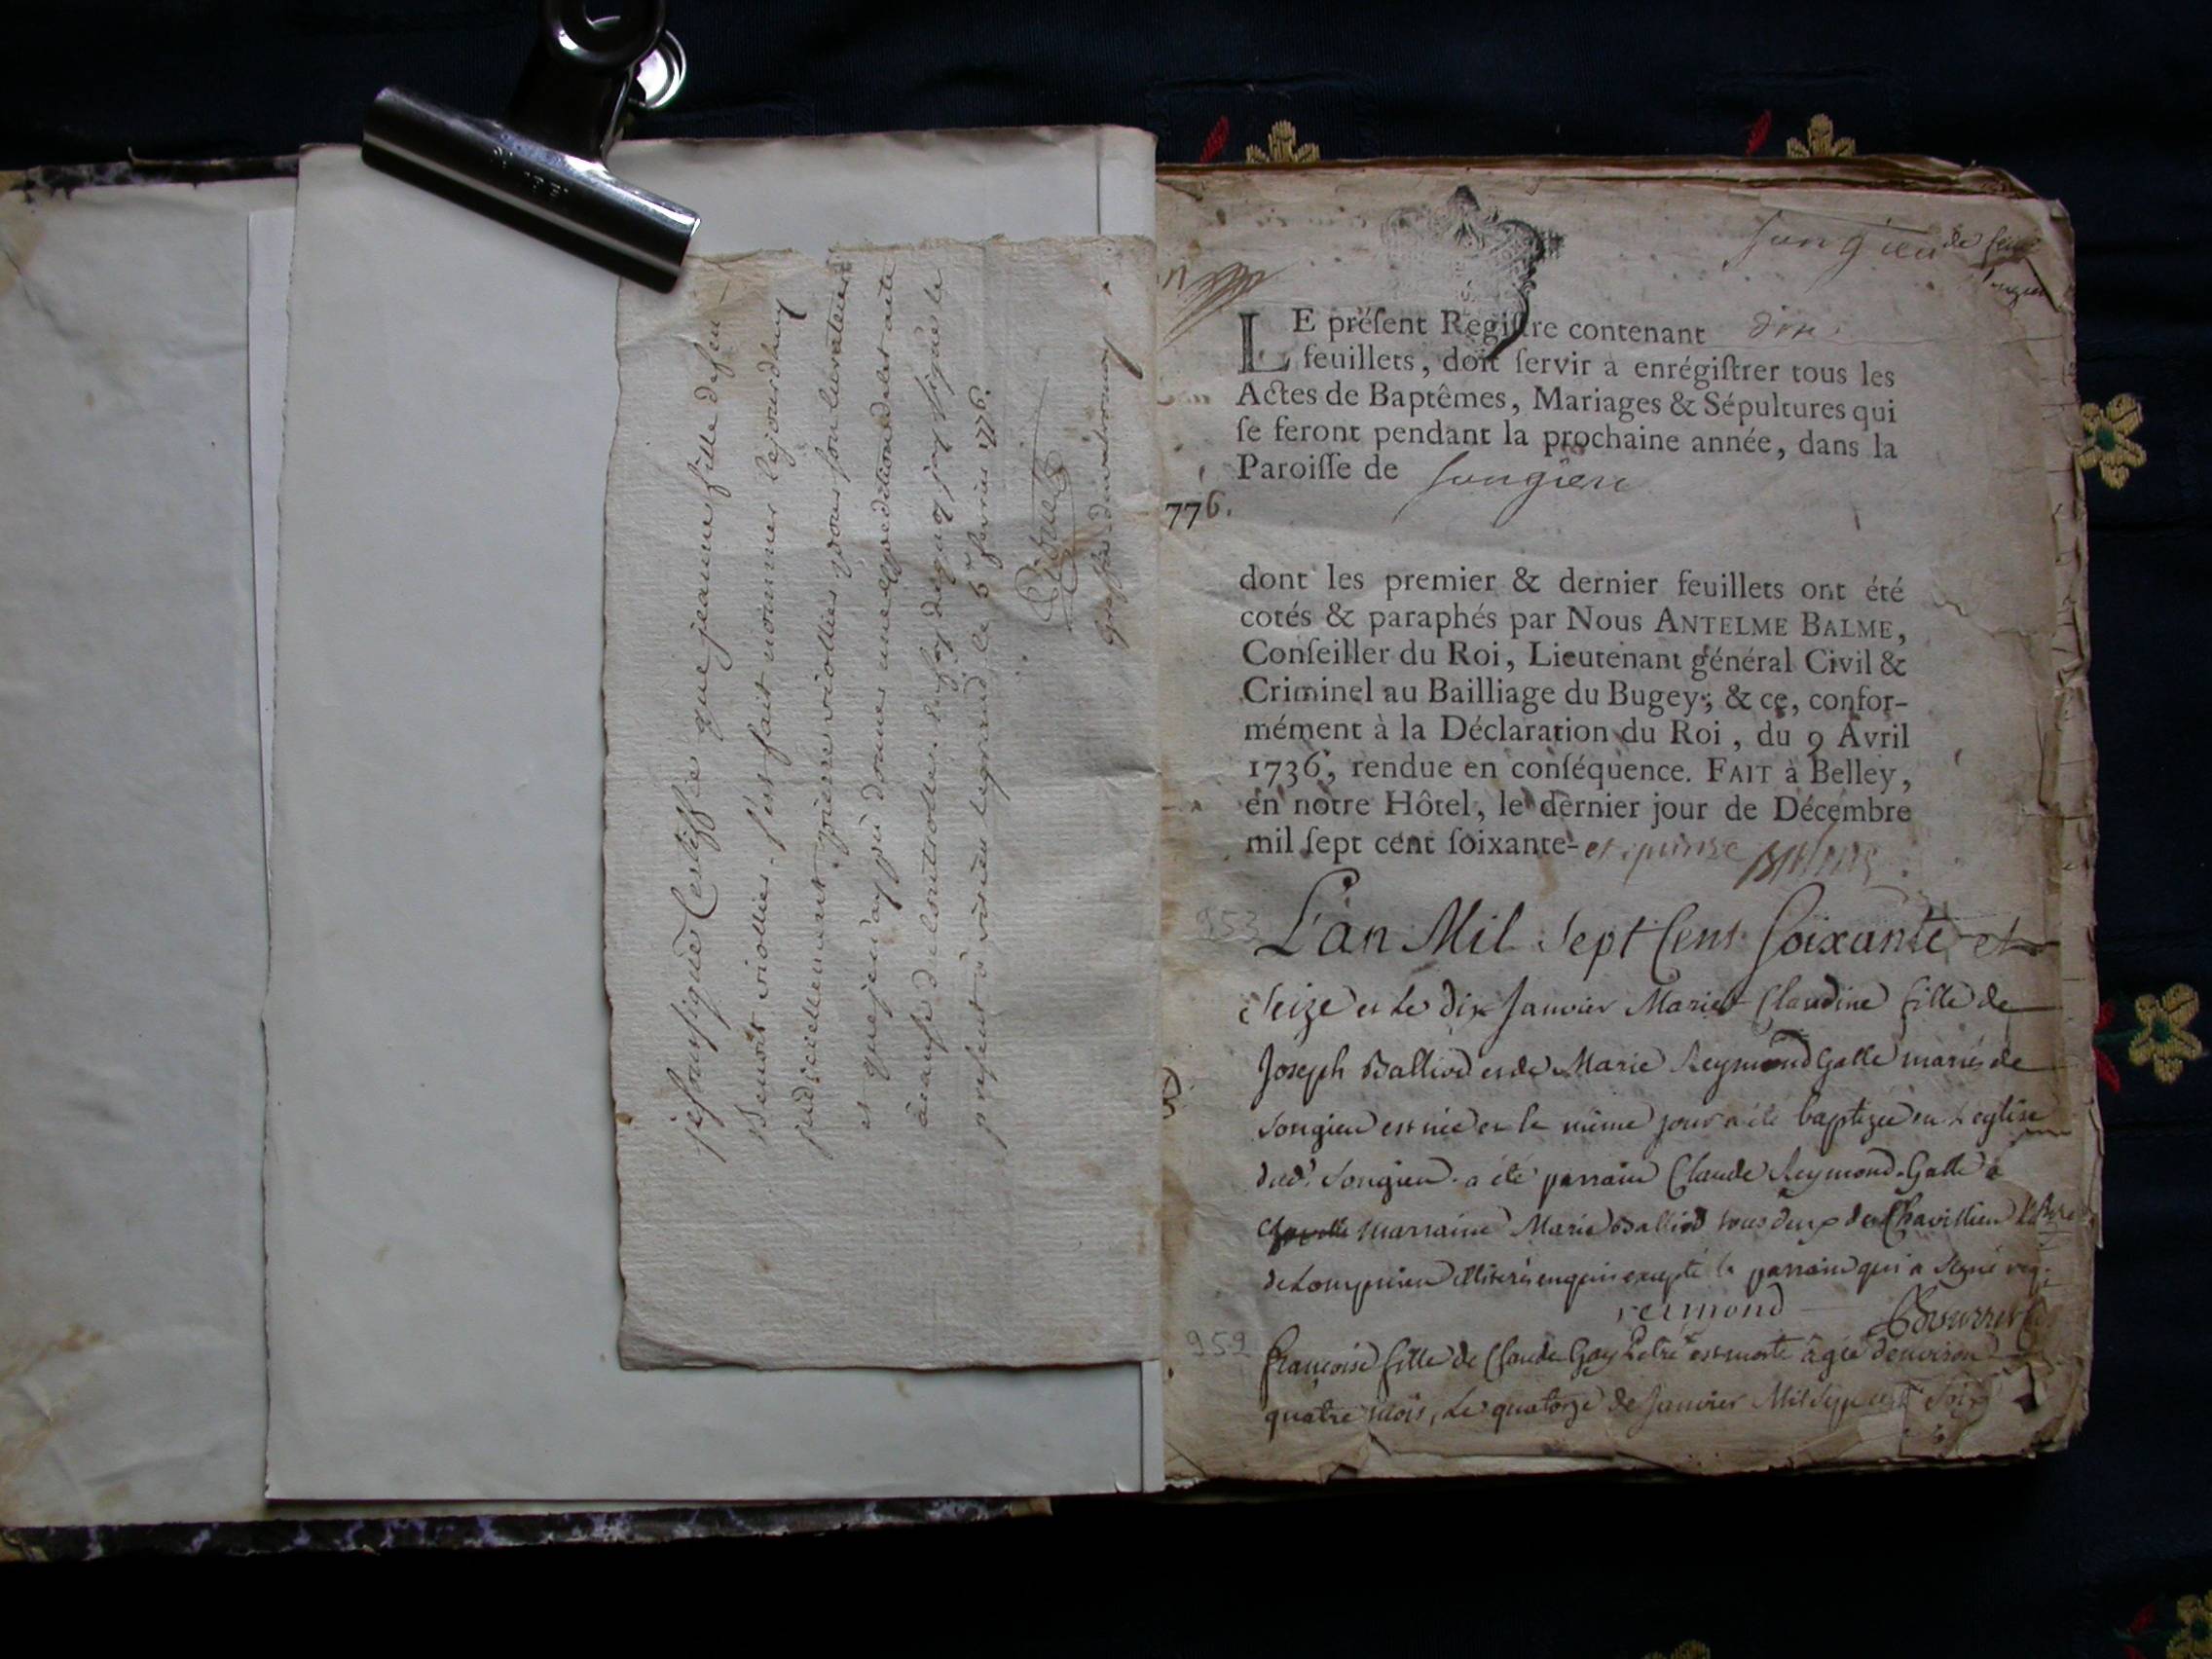 je soussigné Certiffie que jeanne fille de feu
Benoit viollier s'est fait nommer cejourdhuy
judiciellement pierre viollier pour son curateur
et que je n'ay pu donner une expedition dud acte
acause du controlle. En foy dequoy jay signé le
present a virieu le grand le 5e fevrier 1776.
Greffier de valromey
Songieu de
Songieu
LE préſent Regiſtre contenant dix
feuillets, doit ſervir à enrégiſtrer tous les
Actes de Baptêmes, Mariages & Sépultures qui
ſe feront pendant la prochaine année, dans la
Paroiſſe de Songieu
776.
dont les premier & dernier feuillets ont été
cotés & paraphés par Nous ANTELME BALME,
Conſeiller du Roi, Lieutenant général Civil &
Criminel au Bailliage du Bugey; & ce, confor-
mément à la Déclaration du Roi, du 9 Avril
1736, rendue en conſéquence. FAIT à Belley,
en notre Hôtel, le dernier jour de Décembre
mil ſept cent ſoixante-et quinze Balme
953
L'an Mil Sept Cent Soixante et
Seize et le dix Janvier Marie Claudine fille de
Joseph Balliod et de Marie Reymond Galle mariés de
Songieu est née et le même jour a été baptizée en l'eglise
dud. Songieu. a été parrain Claude Reymond-Galle &
marraine Marie Balliod tous deux de Chavillieu
de Lompnieu illiterés enquis excepté le parrain qui a signé req.
reimond Bourret
952
françoise fille de Claude Gay est morte âgée d'environ
quatre mois, Le quatorze de Janvier Mil Sept cent Soix